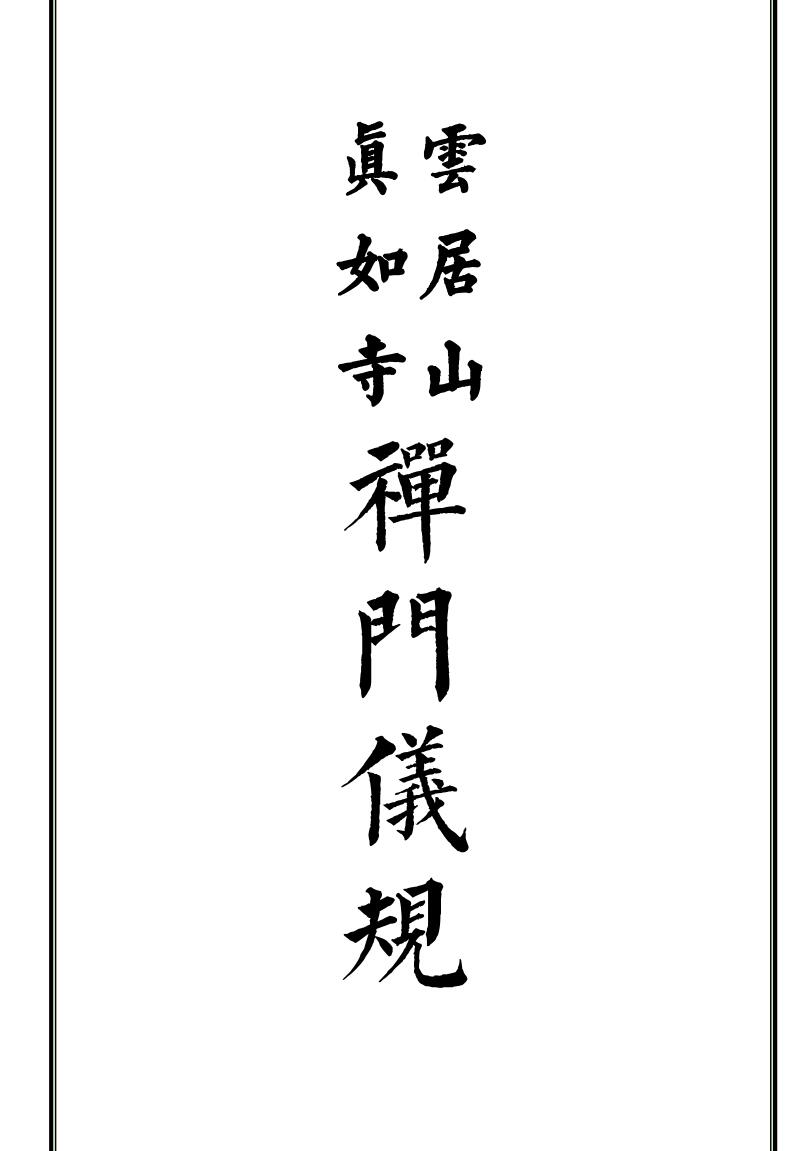 雲居山
眞如寺
禪門儀規